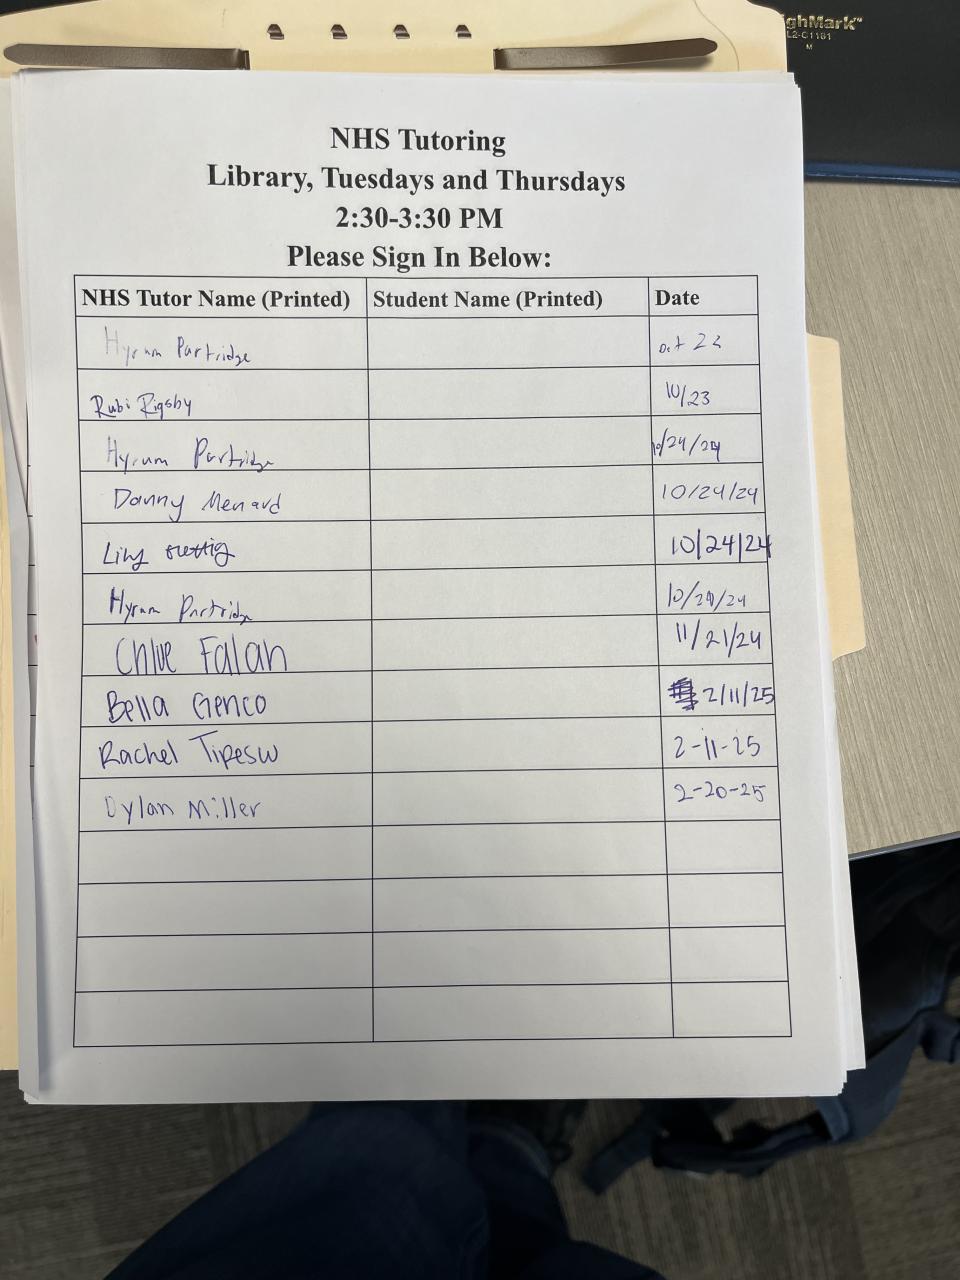 ghMark™
L2-C1181
M
NHS Tutoring
Library, Tuesdays and Thursdays
2:30-3:30 PM
Please Sign In Below:
NHS Tutor Name (Printed) Student Name (Printed) Date
Hyrum Partridge Oct 23
Rubi Rigsby 10/23
Hyrum Partridge 10/24/24
Danny Menard 10/24/24
Lily 10/24/24
Hyrum Partridge
Chloe Falan 11/21/24
Bella Genco 2/11/25
Rachel 2-11-25
Dylan Miller 2-20-25